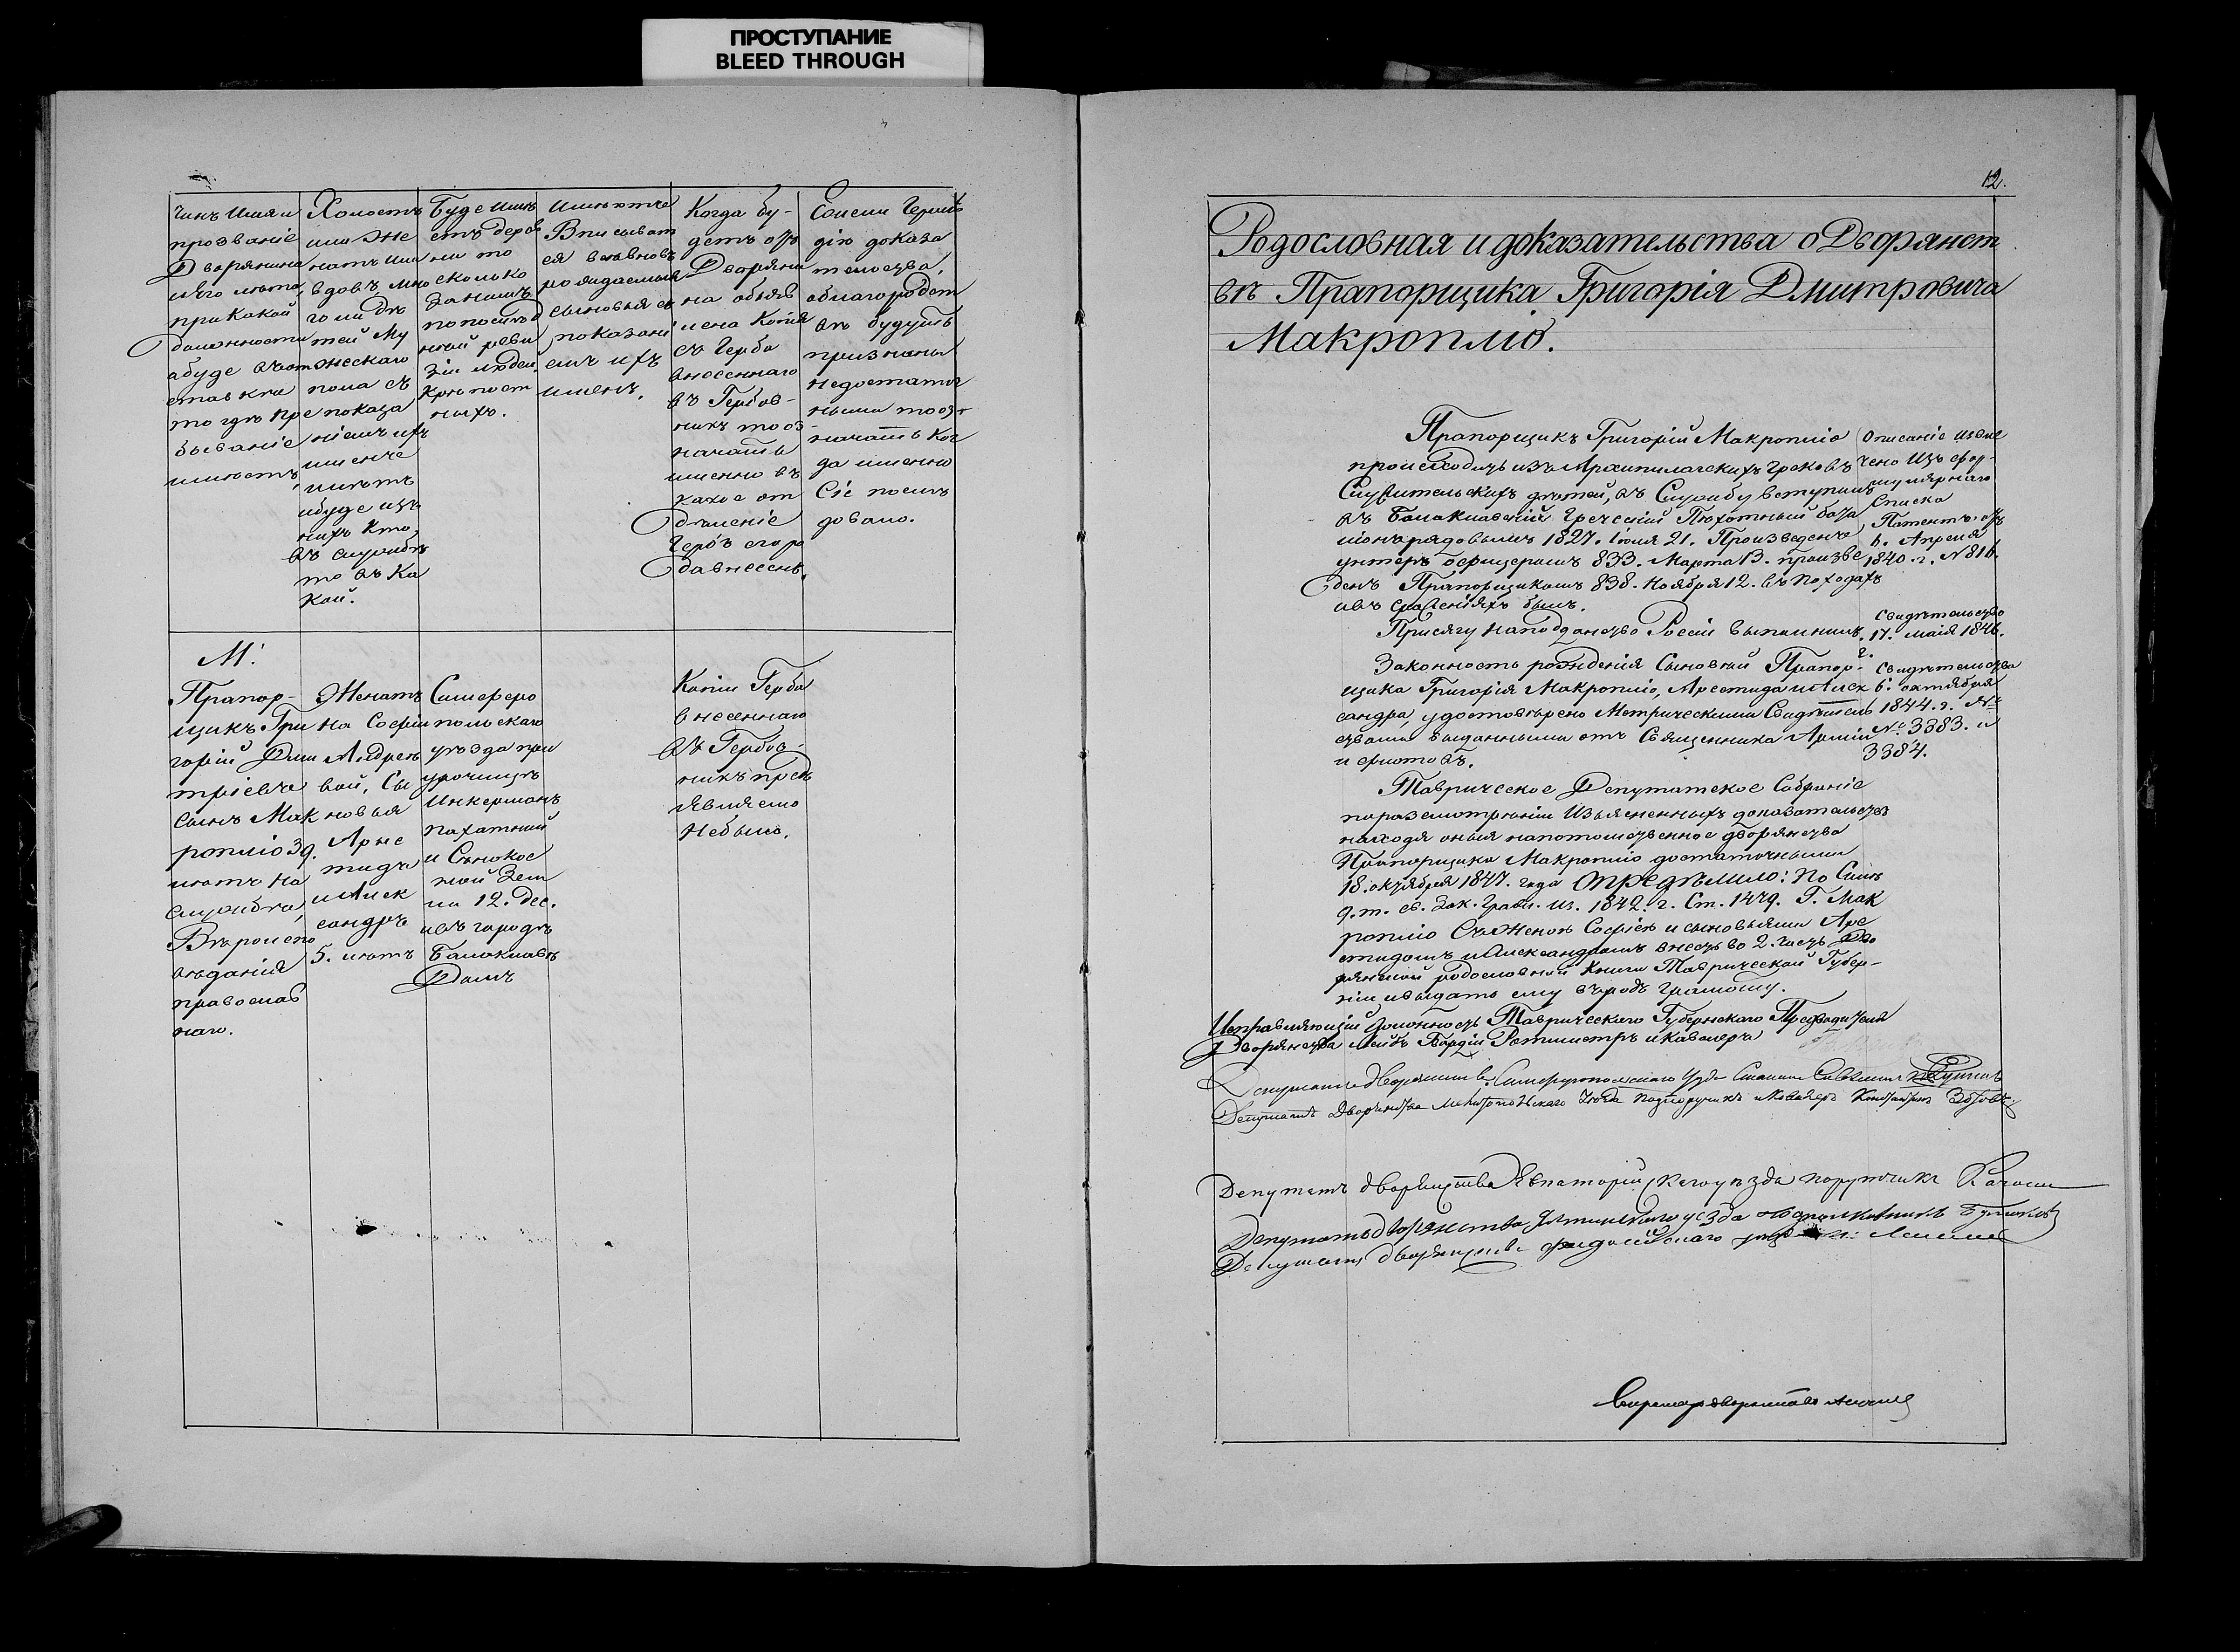 ПРОСТУПАНИЕ
BLEED THROUGH
Чинъ Имя и
прозваніе
Дворянина
и его лѣта,
при какой
должности
а буде въ от
ставкѣ
то гдѣ пре
бываніе
имѣетъ,
Холостъ
или же
натъ или
вдовъ, мно
го ли дѣ
тей му
жескаго
пола съ
показа
ніемъ ихъ
именъ
и лѣтъ
и буде изъ
нихъ кто,
въ службѣ
то въ ка
кой.
Буде имѣ
етъ дерев
ни то
сколько
за нимъ
по послѣд
ней реви
зіи людей
крѣпост
ныхъ.
Вписыват
ся вновь
рождаемыя
сыновья съ
показані
емъ ихъ
именъ.
Когда бу-
детъ отъ
Дворяни
на объяв
лена копія
съ Герба
внесеннаго
въ Гербов-
никъ то оз-
начать
именно въ
какое от
дѣленіе
Гербъ его ро
да внесенъ.
доказа
тельства,
о благородст
вѣ будутъ
признаны
недостаточ
ными то оз-
начать ког
да именно
Сіе послѣ
довало.
М.
Прапор-
щикъ Гри
горій Дми
тріевъ
сынъ Мак
ропліо 39.
лѣтъ на
службѣ,
Вѣроиспо
вѣданія
православ
наго.
Женатъ
на Софіи
Андрее
вой, Сы
новья
Арис
тидъ
и Алек
сандръ
5. лѣтъ
Симферо
польскаго
уѣзда при
урочищѣ
Инкерманъ
пахатной
и Сѣнокос
ной Зем
ли 12. дес.
и въ городѣ
Балаклавѣ
Домъ
Копіи Герба
внесеннаго
въ Гербов-
никъ предъ
являемо
Небыло.
12.
Родословная и доказательства о Дворянст
вѣ Прапорщика Григорія Дмитровича
Макропліо.
Прапорщикъ Григорій Макропліо
происходитъ изъ Архипилагскихъ грековъ
Служительскихъ дѣтей, въ Службу вступилъ
въ Балаклавскій Греческій Пѣхотный бата
ліонъ рядовымъ 1827. Іюля 21. Произведенъ
унтеръ Офицеромъ 833. Марта 13. произве
денъ Прапорщикомъ 838. Ноября 12. въ походахъ
и въ сраженіяхъ былъ.
Описаніе извле
чено изъ фор-
мулярнаго
Списка
Патентъ отъ
6. Апреля
1840. г. N 816.
Присягу на подданство Россіи выполнилъ.
Свидѣтельство
17. маія 1846.
г.
Законность рожденія Сыновей Прапор-
щика Григорія Макропліо, Аристида и Алек
сандра, удостовѣрено Метрическими Свидѣтель
ствами выданными отъ Священника Арміи
и флотовъ.
Свидѣтельства
6. октября
1844. г. №
№ 3383. и
3384.
Таврическое Депутатское Собраніе
по разсмотрѣніи Изъясненныхъ доказательствъ
находя оныя на потомственное дворянство
Прапорщика Макропліо достаточными
18. октября 1847. года Опредѣлило: По Силѣ
9. т. св. Зак. Гражд. из. 1842. г. Ст. 1479. Г. Мак
ропліо Съ Женою Софіею и сыновьями Арис
тидомъ и Александромъ внесть во 2. часть Дво
рянской родословной книги Таврической Губер-
ніи и выдать ему въ родъ грамоту.
Исправляющій должность Таврическаго Губернскаго Предводителя
Дворянства Лейбъ Гвардіи Ротмистръ и Кавалеръ
Депутатъ дворянства Симферопольскаго Уѣзда
Депутатъ Дворянства Мелитопольскаго Уѣзда подпоручикъ и Кавалеръ Константинъ Зотовъ
Депутатъ дворянства Евпаторійскаго уѣзда поручикъ
Депутатъ дворянства Ялтинскаго уезда
Депутатъ дворянства Феодосійскаго
Секретарь дворянства